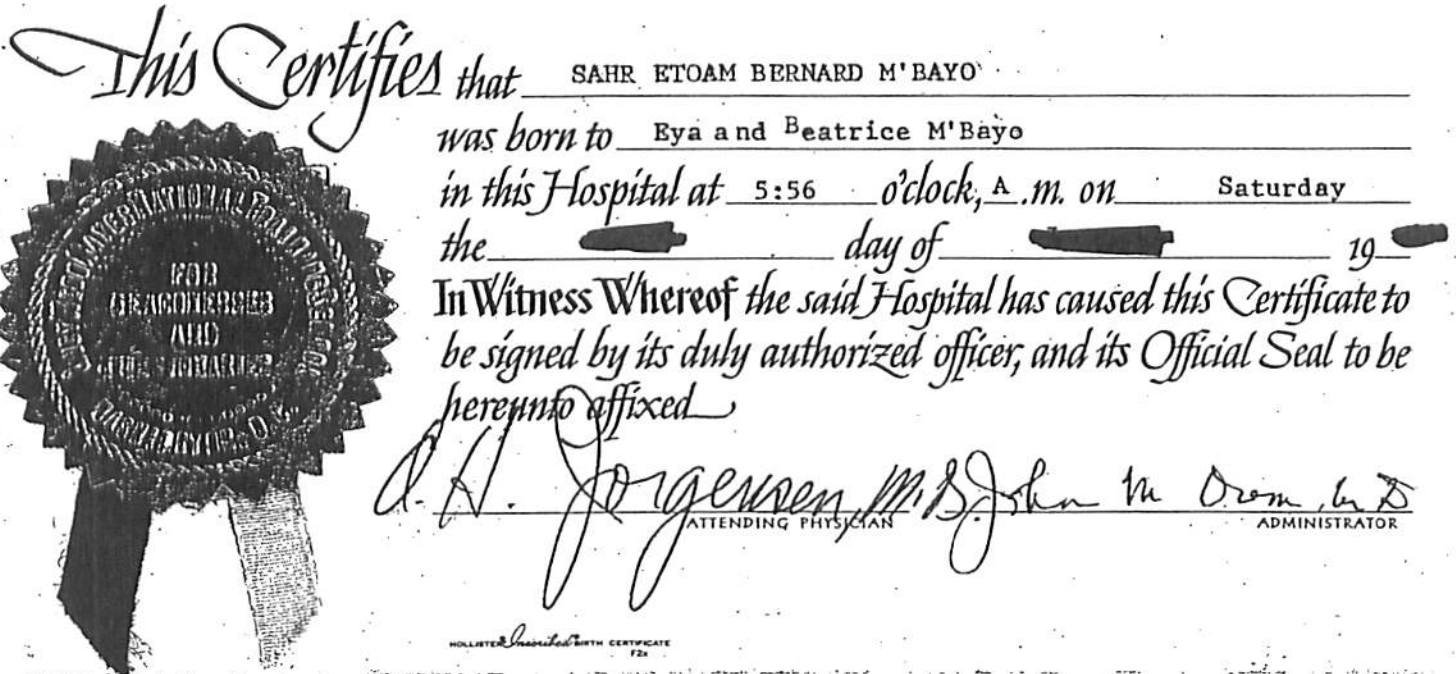 This Certifies that SAHR ETOAM BERNARD M'BAYO
was born to Eya and Beatrice M'Bayo
in this Hospital at 5:56 o'clock, A.m. on Saturday
the day of 19
In Witness Whereof the said Hospital has caused this Certificate to
be signed by its duly authorized officer, and its Official Seal to be
hereunto affixed
FOR
AND
H. Jorgensen, M.D. John M
ATTENDING PHYSICIAN ADMINISTRATOR
HOLLISTER Inscribed BIRTH CERTIFICATE
F2x